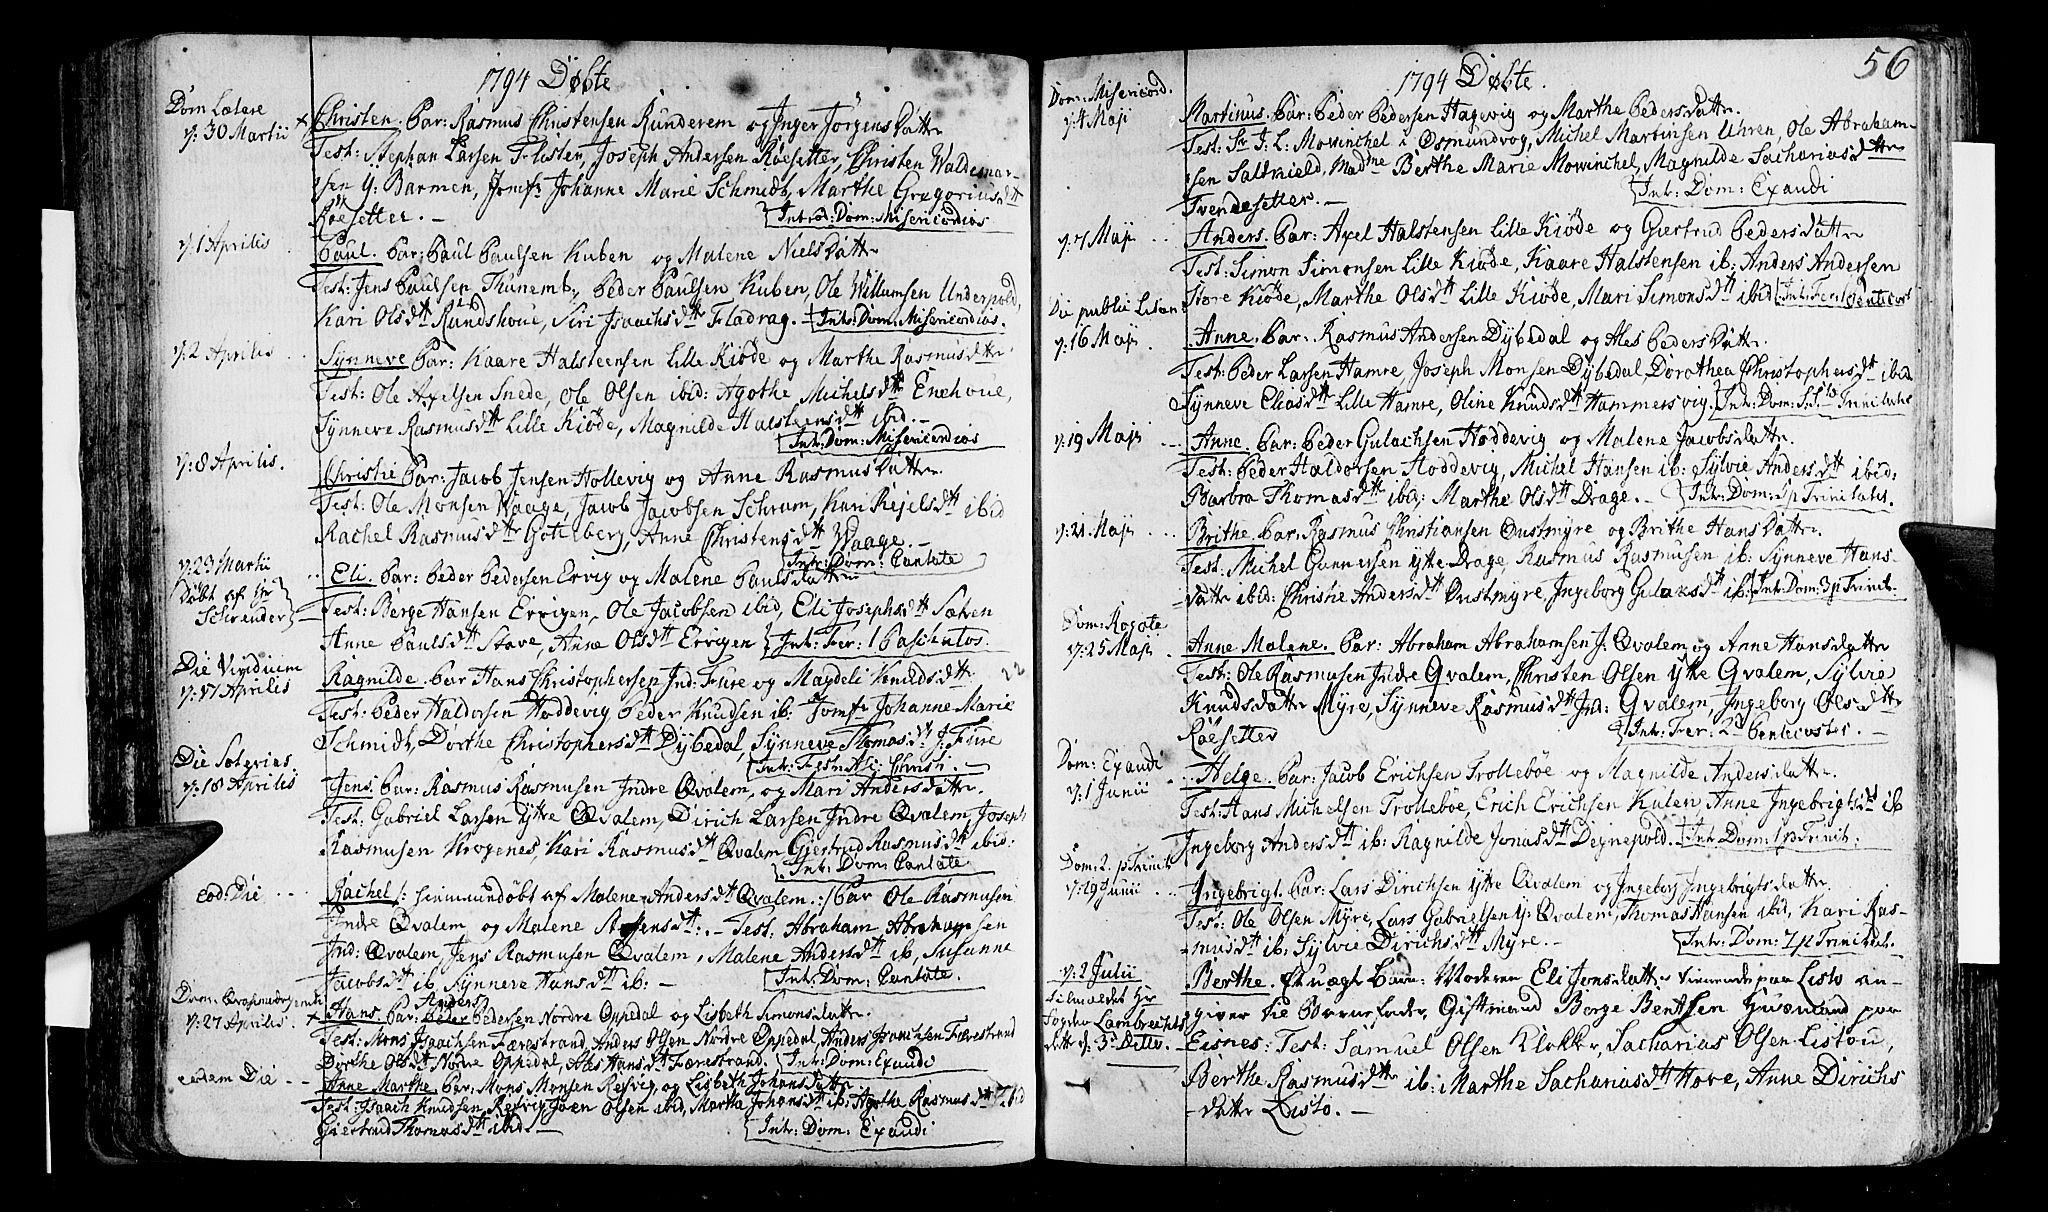 1794 Døbte
Dom Lætare
d: 30 Martii
Christen. Par: Rasmus Christensen Runderem og Inger Jørgens Dattr
Test: Stephan Larsen Flister, Joseph Andersen Røesetter, Christen Waldemar-
sen y: Barmen, Jomfr Johanne Marie Schmidt, Marthe Gregoriusdtt
Røesetter. - Introd: Dom: Misericordias
d: 1 Aprilis
Paul. Par: Paul Paulsen Kuben og Malene NielsDattr
Test: Jens Paulsen Thunemb, Peder Paulsen Kuben, Ole Willumsen Underpold,
Kari Olsdtt Rundshoue, Siri Isaachsdtr Fladrag. Intr: Dom: Misericordias.
d: 2 Aprilis
Synneve Par: Kaare Halsteensen Lille Kiøde og Marthe Rasmusdttr
Test: Ole Axelsen Snede, Ole Olsen ibid: Agothe Michelsdtt Enehoue,
Synneve Rasmusdtt Lille Kiøde, Magnilde Halsteensdtt ibid. -
Intr: Dom: Misericordias
d: 8 Aprilis.
Christie Par: Jacob Jensen Hollevig og Anne RasmusDattr.
Test: Ole Monsen Waage, Jacob Jacobsen Schrum, Kari Rejelsdtt ibid
Rachel Rasmusdtt Gotteberg, Anne Christensdtt Waage. -
Intr: Dom: Cantate
d: 23 Martii
Døbt af Hr
Schreuder
Eli. Par: Peder Pedersen Ervig og Malene Paulsdattr
Test: Berge Hansen Errigen, Ole Jacobsen ibid, Eli Josephsdtt Sætren
Anne Paulsdtt Stave, Anne Olsdtt Errigen Intr: Fer: 1 Paschatos.
Die Viridium
d: 17 Aprilis
Ragnilde. Par Hans Christophersen Ind: Fure og Magdeli Knudsdttr 22
Test: Peder Haldorsen Hoddevig Peder Knudsen ib: Jomfr Johanne Marie
Schmidt, Dorthe Christophersdtt Dybedal, Synneve Thomasdtt J. Fure
Intr: Festo Asc: Christi. -
Die Soterias.
d: 18 Aprilis
Jens. Par: Rasmus Rasmusen Indre Qvalem, og Mari Andersdattr.
Test: Gabriel Larsen ytte Qvalem, Dirich Larsen Indre Qvalem, Joseph
Rasmusen Krogenes, Kari Rasmusdtt Qvalem Giertrud Rasmusdtt ibid:
Intr: Dom: Cantate
eod: Die
Rachel /: hiemmedøbt af Malene Andersdtt Qvalem.:/ Par Ole Rasmusen
Indre Qvalem og Malene Steffensdtt:. - Test: Abraham Abrahamsen
Ind: Qvalem, Jens Rasmusen Qvalem, Malene Andersdtt ib, Susanne
Jacobsdtt ib, Synneve Hansdtt ib: - Intr: Dom: Cantate.
Dom: Qvasimodogeniti
d: 27 Aprilis.
Hans. Par: Anders Pedersen Nordre Oppedal og Lisbeth Simonsdattr.
Test: Mons Isaachsen Færestrand, Anders Olsen Nordre Oppedal, Anders Isaachsen Færestrand
Dorthe Olsdtt Nordre Oppedal, Ales Hansdtt Færestrand. Intr: Dom: Exaudi
eodem Die
Anne Marthe. Par: Mons Monsen Refvig, og Lisbeth Johansdattr
Test: Isaach Knudsen, Refvig Joen Olsen ibid, Martha Johansdtt ib: Agothe Rasmusdtt ibid
Giertrud Thomasdtt ibid. - Intr: Dom: Exaudi
56
1794 Døbte.
Dom: Misericord.
d: 4 Maji
Martinus. Par: Peder Pedersen Hagevig og Marthe Pedersdattr.
Test: Sr J: L: Mowinchel i Osmundvog, Michel Martinsen Uhren, Ole Abraham-
sen Saltskield, Madme Berthe Marie Mowinchel, Magnilde Sachariasdttr
Tvendesetter. - Intr: Dom: Exaudi
d: 7 Maji
Anders. Par: Axel Halstensen Lille Kiøde og Giertrud Pedersdattr
Test: Simon Simonsen Lille Kiøde, Kaare Halstensen ib: Anders Andersen
Store Kiøde, Marthe Olsdtt Lille Kiøde, Mari Simonsdtt ibid Intr: Fer: 1 Pentecost
Die public Litan:
d: 16 Maji
Anne. Par. Rasmus Andersen Dybedal og Ales PedersDattr.
Test: Peder Larsen Hamre, Joseph Monsen Dybedal, Dorothea Christophersdtt ibid
Synneve Eliasdtt Lille Hamre, Oline Knudsdtt Hammersvig. Intr: Dom: S.Stæ Trinitatis
d: 19 Maji
Anne Par: Peder Gulachsen Hoddevig og Malene Jacobsdattr.
Test: Peder Haldorsen Hoddevig, Michel Hansen ib: Sylvie Andersdtt ibid:
Barbra Thomasdtt ibid: Marthe Olsdtt Drage. - Intr: Dom: 1 p Trinitatis.
d: 21 Maji
Brithe Par: Rasmus Christiansen Oustmyre og Brithe HansDattr.
Test: Michel Gunnersen ytte Drage, Rasmus Rasmusen ib: Synneve Hans-
dattr ibid: Christie Andersdtt Oustmyre, Ingeborg Gulaksdtt ib: Intr: Dom: 3 p Trinit.
Dom: Rogate
d: 25 Maji
Anne Malene. Par: Abraham Abrahamsen J: Qvalem og Anne Hansdattr
Test: Ole Rasmusen Indre Qvalem, Christen Olsen ytte Qvalem, Sylvie
Knudsdattr Myre, Synneve Rasmusdtt Ind: Qvalem, Ingeborg Olsdtt
Røesetter Intr: Fer: 2d Pentecostes. -
Dom: Exaudi
d: 1 Junii
Helge. Par: Jacob Erichsen Trollebøe og Magnilde Andersdattr.
Test: Hans Michelsen Trollebøe, Erich Erichsen Kulen, Anne Ingebrigtsdtt ib
Ingeborg Andersdtt ib: Ragnilde Jonasdtt Degnepold. Intr: Dom: 1 p Trinit:
Dom: 2. p. Trinit:
d: 29 Junii
Ingebrigt. Par: Lars Dirichsen ytte Qvalem og Ingeborg Ingebrigtsdattr.
Test: Ole Olsen Myre, Lars Gabrielsen y: Qvalem, Thomas Hansen ibid, Kari Ras-
musdtt ib: Sylvie Dirichsdtt Myre. - Intr: Dom: 7 p Trinitat.
d: 2 Julii
tilmeldet Hr
Fogden Lambrechts
datter d: 3 Dito.
Berthe. Et uægte Barn: Moderen Eli Jonsdattr tienende paa Listo an-
giver til Barnefader, Giftmand Børge Bentsen Huusmand paa
Eisnes: Test: Samuel Olsen Klokker, Sacharias Olsen Listou,
Berthe Rasmusdttr ib: Marthe Sachariasdtt Hove, Anne Dirichs
-dattr Listo. -